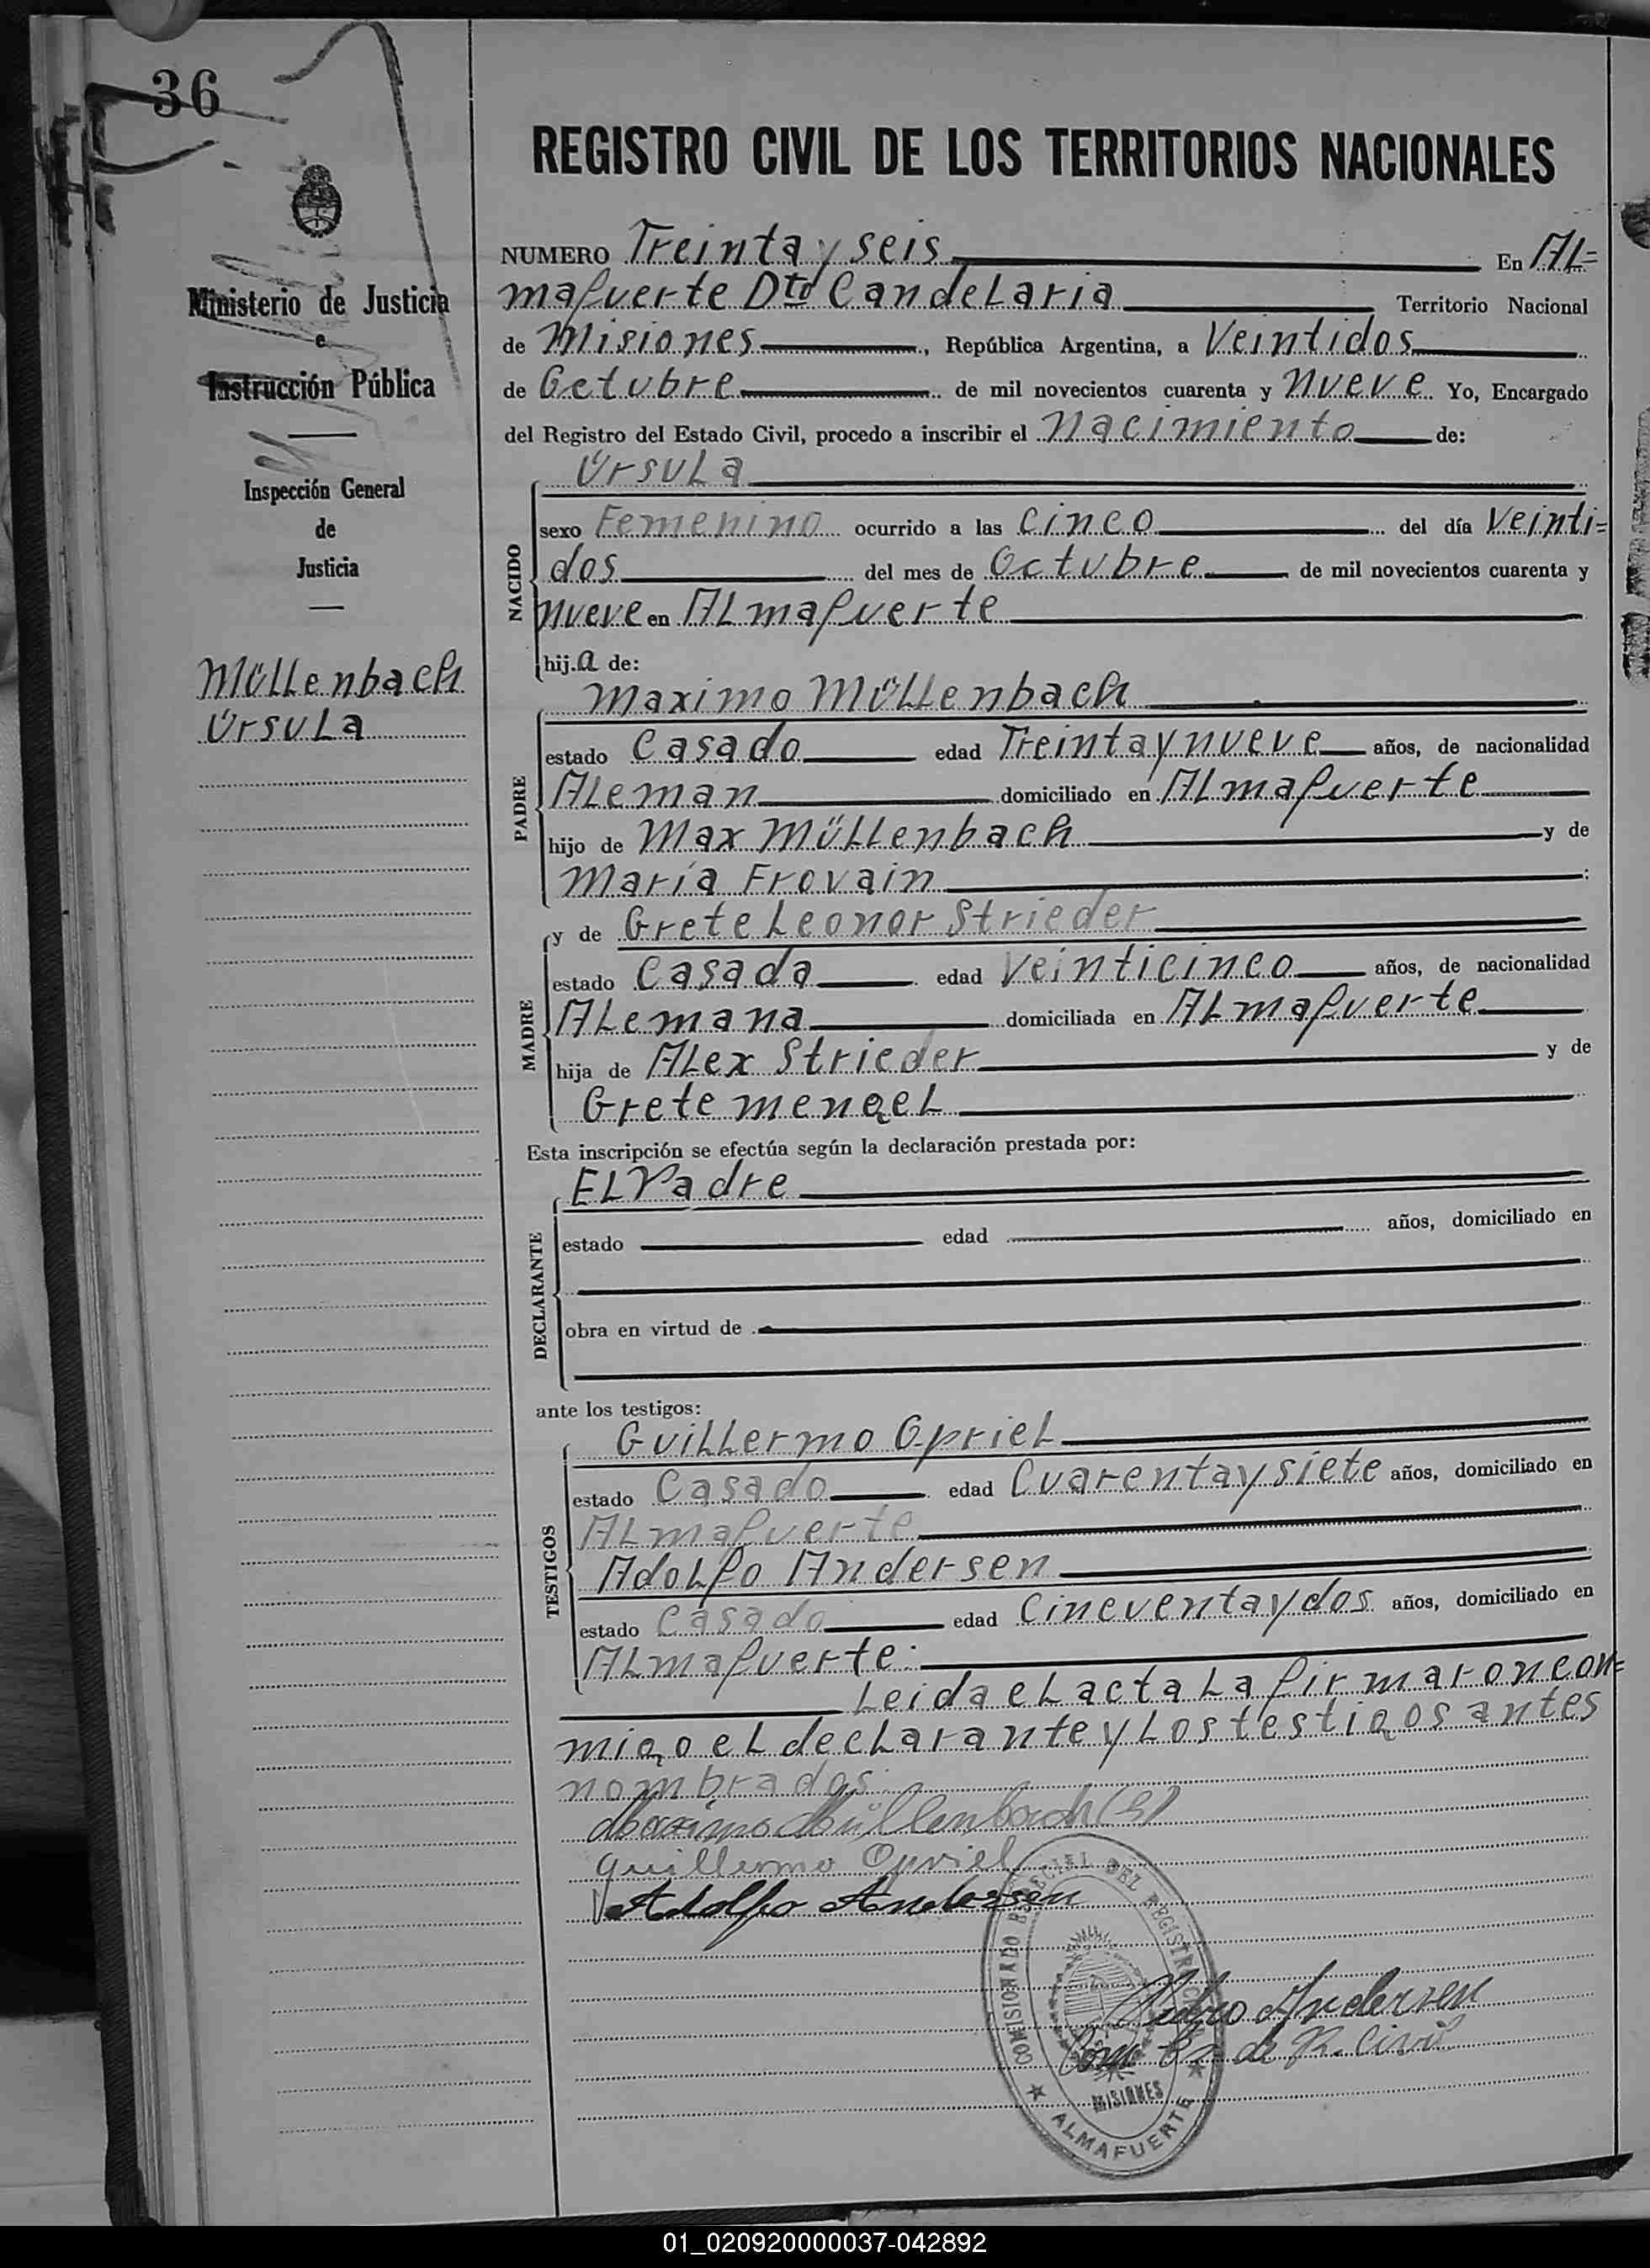 36
REGISTRO CIVIL DE LOS TERRITORIOS NACIONALES
Ministerio de Justicia
e
Instrucción Pública
Inspección General
de
Justicia
Müllenbach
Úrsula
NUMERO Treinta y seis En Al=
mafuerte Dto Candelaria Territorio Nacional
de Misiones, República Argentina, a Veintidos
de Octubre de mil novecientos cuarenta y nueve Yo, Encargado
del Registro del Estado Civil, procedo a inscribir el nacimiento de:
Úrsula
NACIDO
sexo Femenino ocurrido a las cinco del día Veinti=
dos del mes de Octubre de mil novecientos cuarenta y
nueve en Almafuerte
hij.a de:
Maximo Müllenbach
PADRE
estado Casado edad Treinta y nueve años, de nacionalidad
Aleman domiciliado en Almafuerte
hijo de Max Müllenbach y de
María Frovain
y de Grete Leonor Strieder
MADRE
estado Casada edad Veinticinco años, de nacionalidad
Alemana domiciliada en Almafuerte
hija de Alex Strieder y de
Grete Mengel
Esta inscripción se efectúa según la declaración prestada por:
El Padre
DECLARANTE
estado edad años, domiciliado en
obra en virtud de
ante los testigos:
Guillermo Opriel
TESTIGOS
estado Casado edad Cuarenta y siete años, domiciliado en
Almafuerte
Adolfo Andersen
estado Casado edad Cincuenta y dos años, domiciliado en
Almafuerte.
Leida el acta la firmaron con=
migo el declarante y los testigos antes
nombrados.
Maximo Müllenbach
Guillermo Opriel
Adolfo Andersen
COMISIONADO ESPECIAL DEL REGISTRO CIVIL
Pedro Andersen
de R. Civil
MISIONES
ALMAFUERTE
01_020920000037-042892